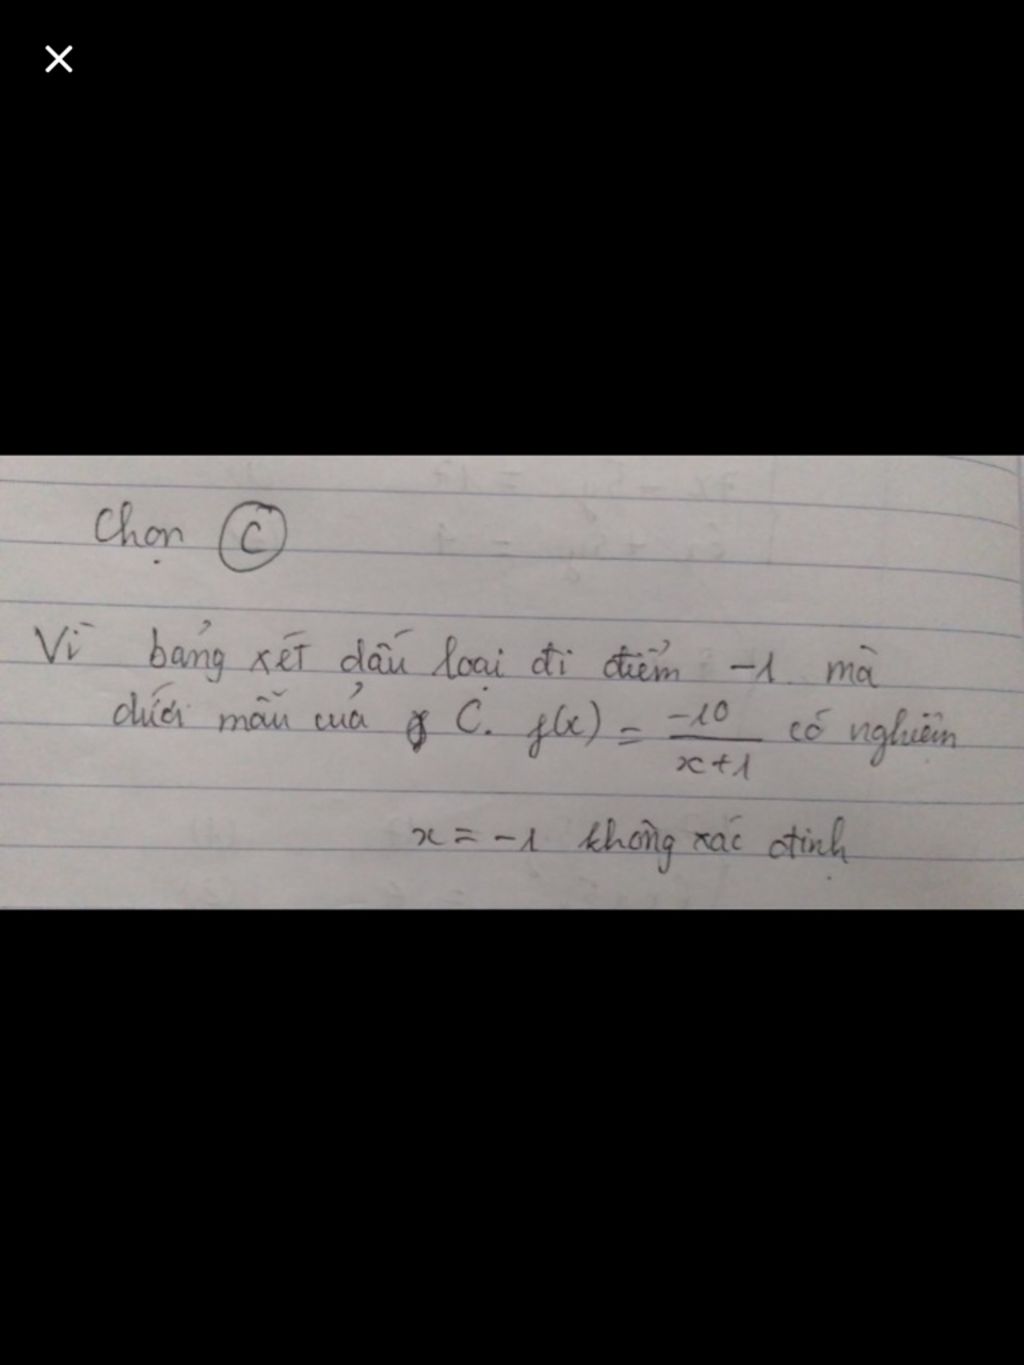 Chọn C
Vì bảng xét dấu loại đi điểm -1 mà
dưới mẫu của C. f(x) = -10/x+1 có nghiệm
x = -1 không xác định